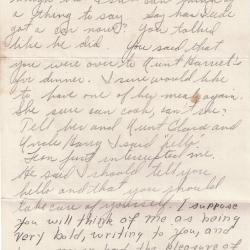 a thing to say. Say has Jude
got a car now? You talked
like he did. You said that
you were over to Aunt Harriet's
for dinner. I sure would like
to have one of her meals again.
She sure can cook, can't she?
Tell her and Aunt Clara and
Uncle Harry I said hello.
just interrupted me.
He said I should tell you
hello and that you should
take care of yourself. I suppose
you will think of me as being
very bold, writing to you, and
had the pleasure of